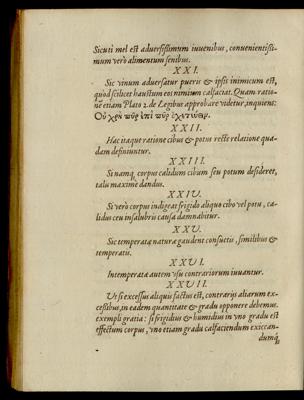 Sicuti mel est aduersissimum iuuenibus, conuenientissi-
mum verò alimentum senibus.
XXI.
Sic vinum aduersatur pueris & ipsis inimicum est,
quòd scilicet haustum eos nimium calfaciat. Quam ratio-
ne etiam Plato 2. de Legibus approbare videtur, inquiens:
Οὐ χρὴ πῦρ ἐπὶ πῦρ
XXII.
Hac itaque ratione cibus & potus recte relatione qua-
dam definiuntur.
XXIII.
Si namq; corpus calidum cibum seu potum desideret,
talu maxime dandus.
XXIV.
Si verò corpus indigeat frigido aliquo cibo vel potu, ca-
lidus ceu insalubris causa damnabitur.
XXV.
Sic temperatæ naturæ gaudent consuetis, similibus &
temperatis.
XXVI.
Intemperatæ autem vsu contrariorum iuuantur.
XXVII.
Ut si excessus aliquis factus est, contrarijs aliarum ex-
cessibus, in eadem quantitate & gradu opponere debemus.
exempli gratia: si frigidius & humidius in vno gradu est
effectum corpus, vno etiam gradu calfaciendum exiccan-
dumq;